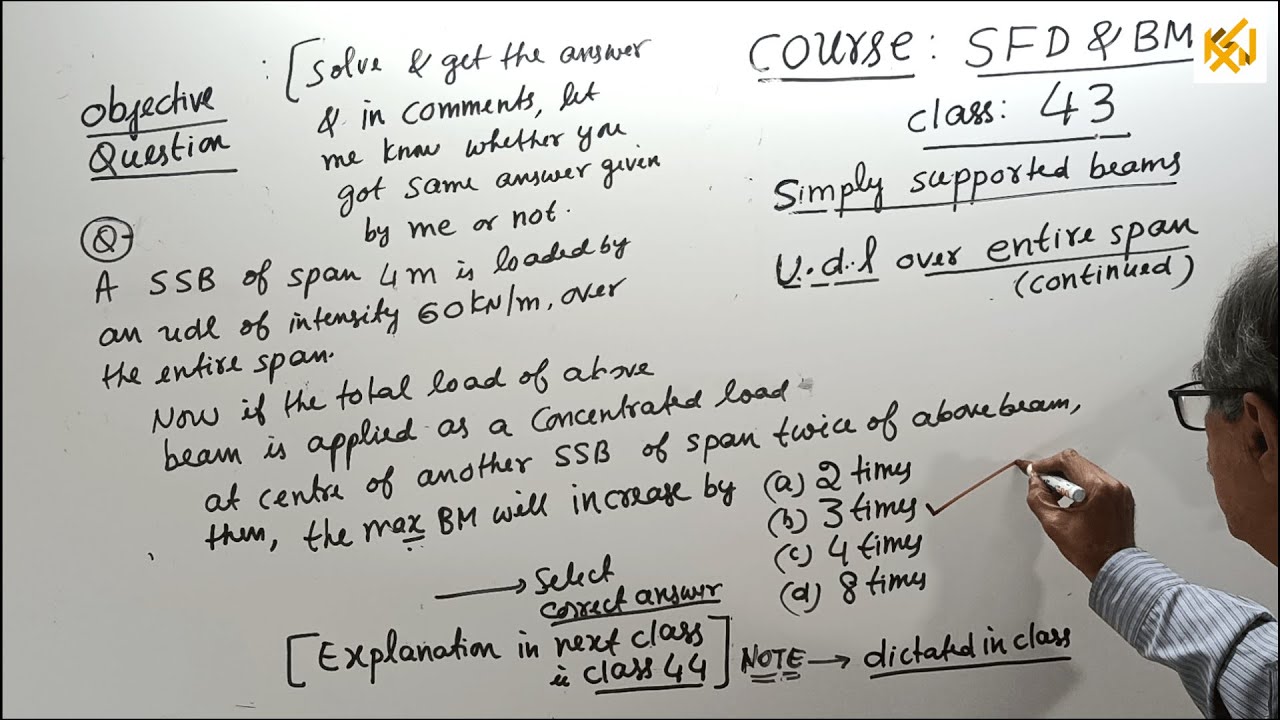 COURSE: SFD & BM
class: 43
Simply supported beams
U.d.l over entire span
(continued)
Objective
Question
: [Solve & get the answer
& in comments, let
me know whether you
got same answer given
by me or not.
Q-
A SSB of span 4m is loaded by
an udl of intensity 60kN/m, over
the entire span.
Now if the total load of above
beam is applied as a concentrated load
at centre of another SSB of span twice of above beam,
then, the max BM will increase by (a) 2 times
(b) 3 times ✓
(c) 4 times
(d) 8 times
→ Select
correct answer
[Explanation in next class
ie class 44]
NOTE → dictated in class